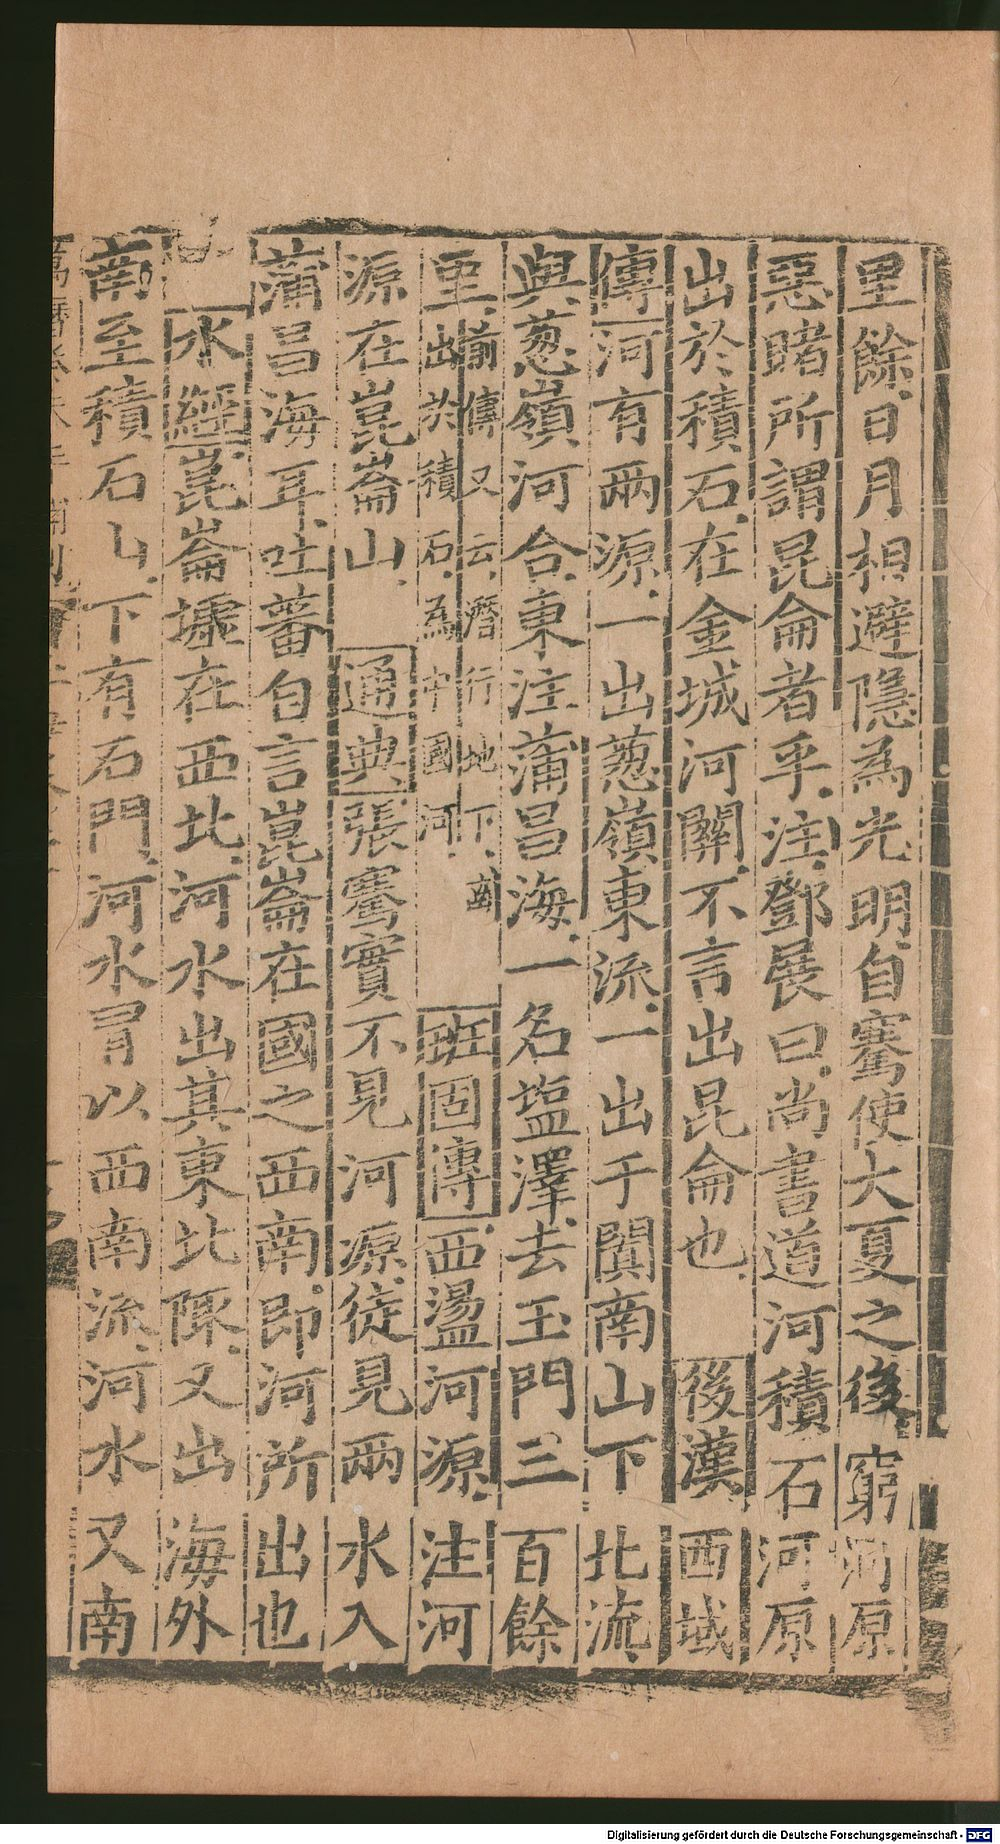 里餘日月相避隱為光明自騫使大夏之後窮河原
惡睹所謂昆侖者乎注鄧展曰尚書道河積石河原
出於積石在金城河關不言出昆侖也　後漢西域
傳河有兩源一出葱嶺東流一出于闐南山下北流
與葱嶺河合東注蒲昌海一名塩澤去玉門三百餘
里前傳又云潛行地下南出於積石為中國河　班固傳西盪河源注河
源在崑崙山　通典張騫實不見河源徒見兩水入
蒲昌海耳吐蕃自言崑崙在國之西南即河所出也
水經崑崙墟在西北河水出其東北陬又出海外
南至積石山下有石門河水冒以西南流河水又南
Digitalisierung gefördert durch die Deutsche Forschungsgemeinschaft - DFG